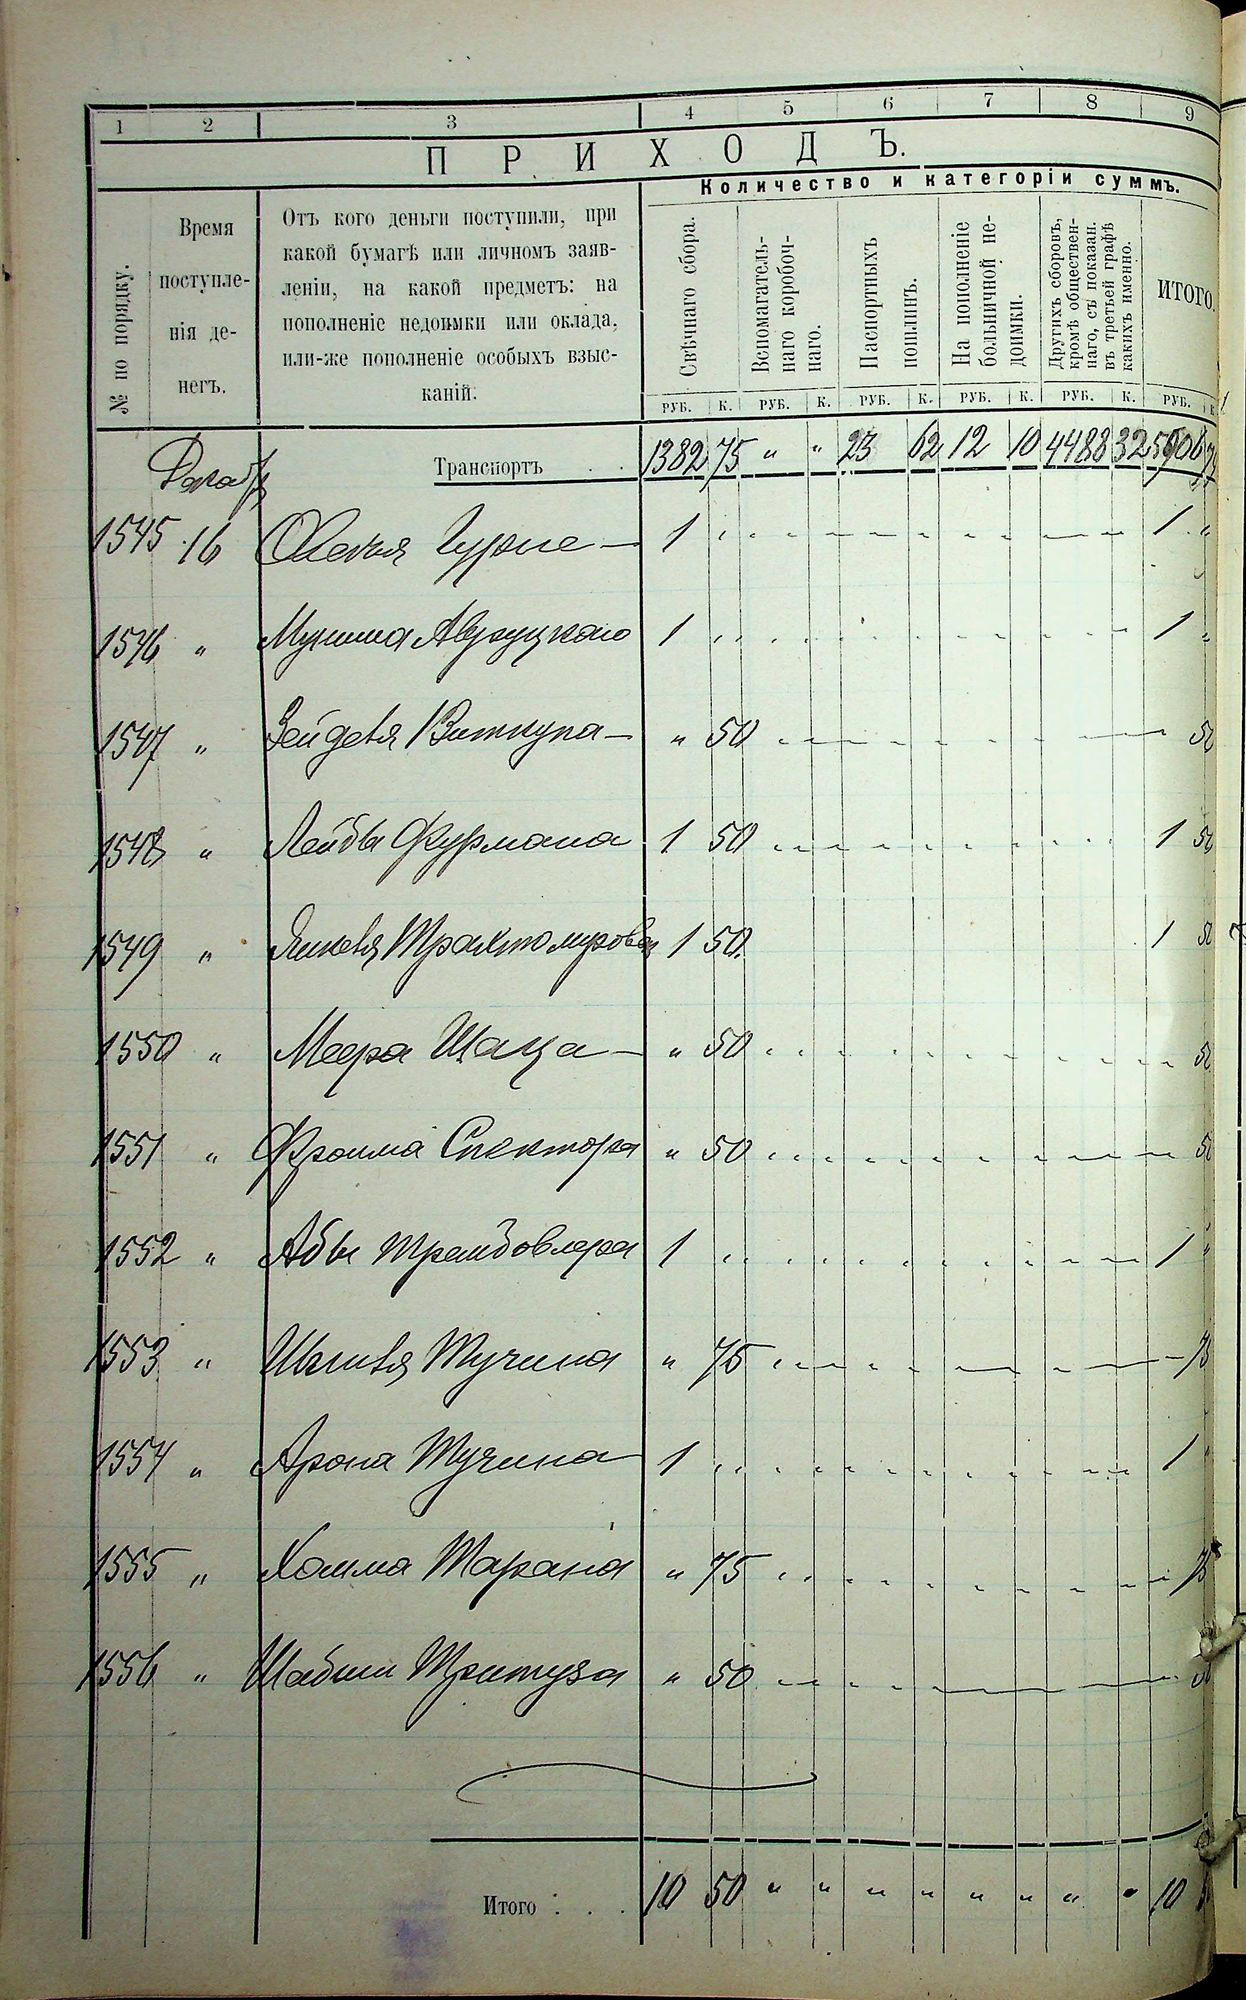 1 2 3 4 5 6 7 8 9
ПРИХОДЪ.
Количество и категоріи суммъ.
№ по порядку.
Время поступле-
нія де-
негъ.
Отъ кого деньги поступили, при
какой бумагѣ или личномъ заяв-
леніи, на какой предметъ: на
пополненіе недоимки или оклада,
или-же пополненіе особыхъ взыс-
каній.
Свѣчнаго сбора.
Вспомагатель-
наго коробоч-
наго.
Паспортныхъ
пошлинъ.
На пополненіе
больничной не-
доимки.
Другихъ сборовъ,
кромѣ обществен-
наго, съ показан.
въ третьей графѣ
какихъ именно.
ИТОГО.
РУБ. К. РУБ. К. РУБ. К. РУБ. К. РУБ. К. РУБ. К.
Декабр
Транспортъ . . 1382 75 " " 23 62 12 10 4488 32 5906
1545 16 1 1 "
1546 " 1 1 "
1547 " " 50 50
1548 " Лейбы Фурмана 1 50 1 50
1549 " 1 50 1 50
1550 " Меера Шаца " 50 50
1551 " Фроима Спектора " 50 50
1552 " Абы 1 1 "
1553 " Тучина " 75 75
1554 " Арона Тучина 1 1 "
1555 " Хаима Тарана " 75 75
1556 " " 50 50
Итого . . . 10 50 " " " " " " " " 10